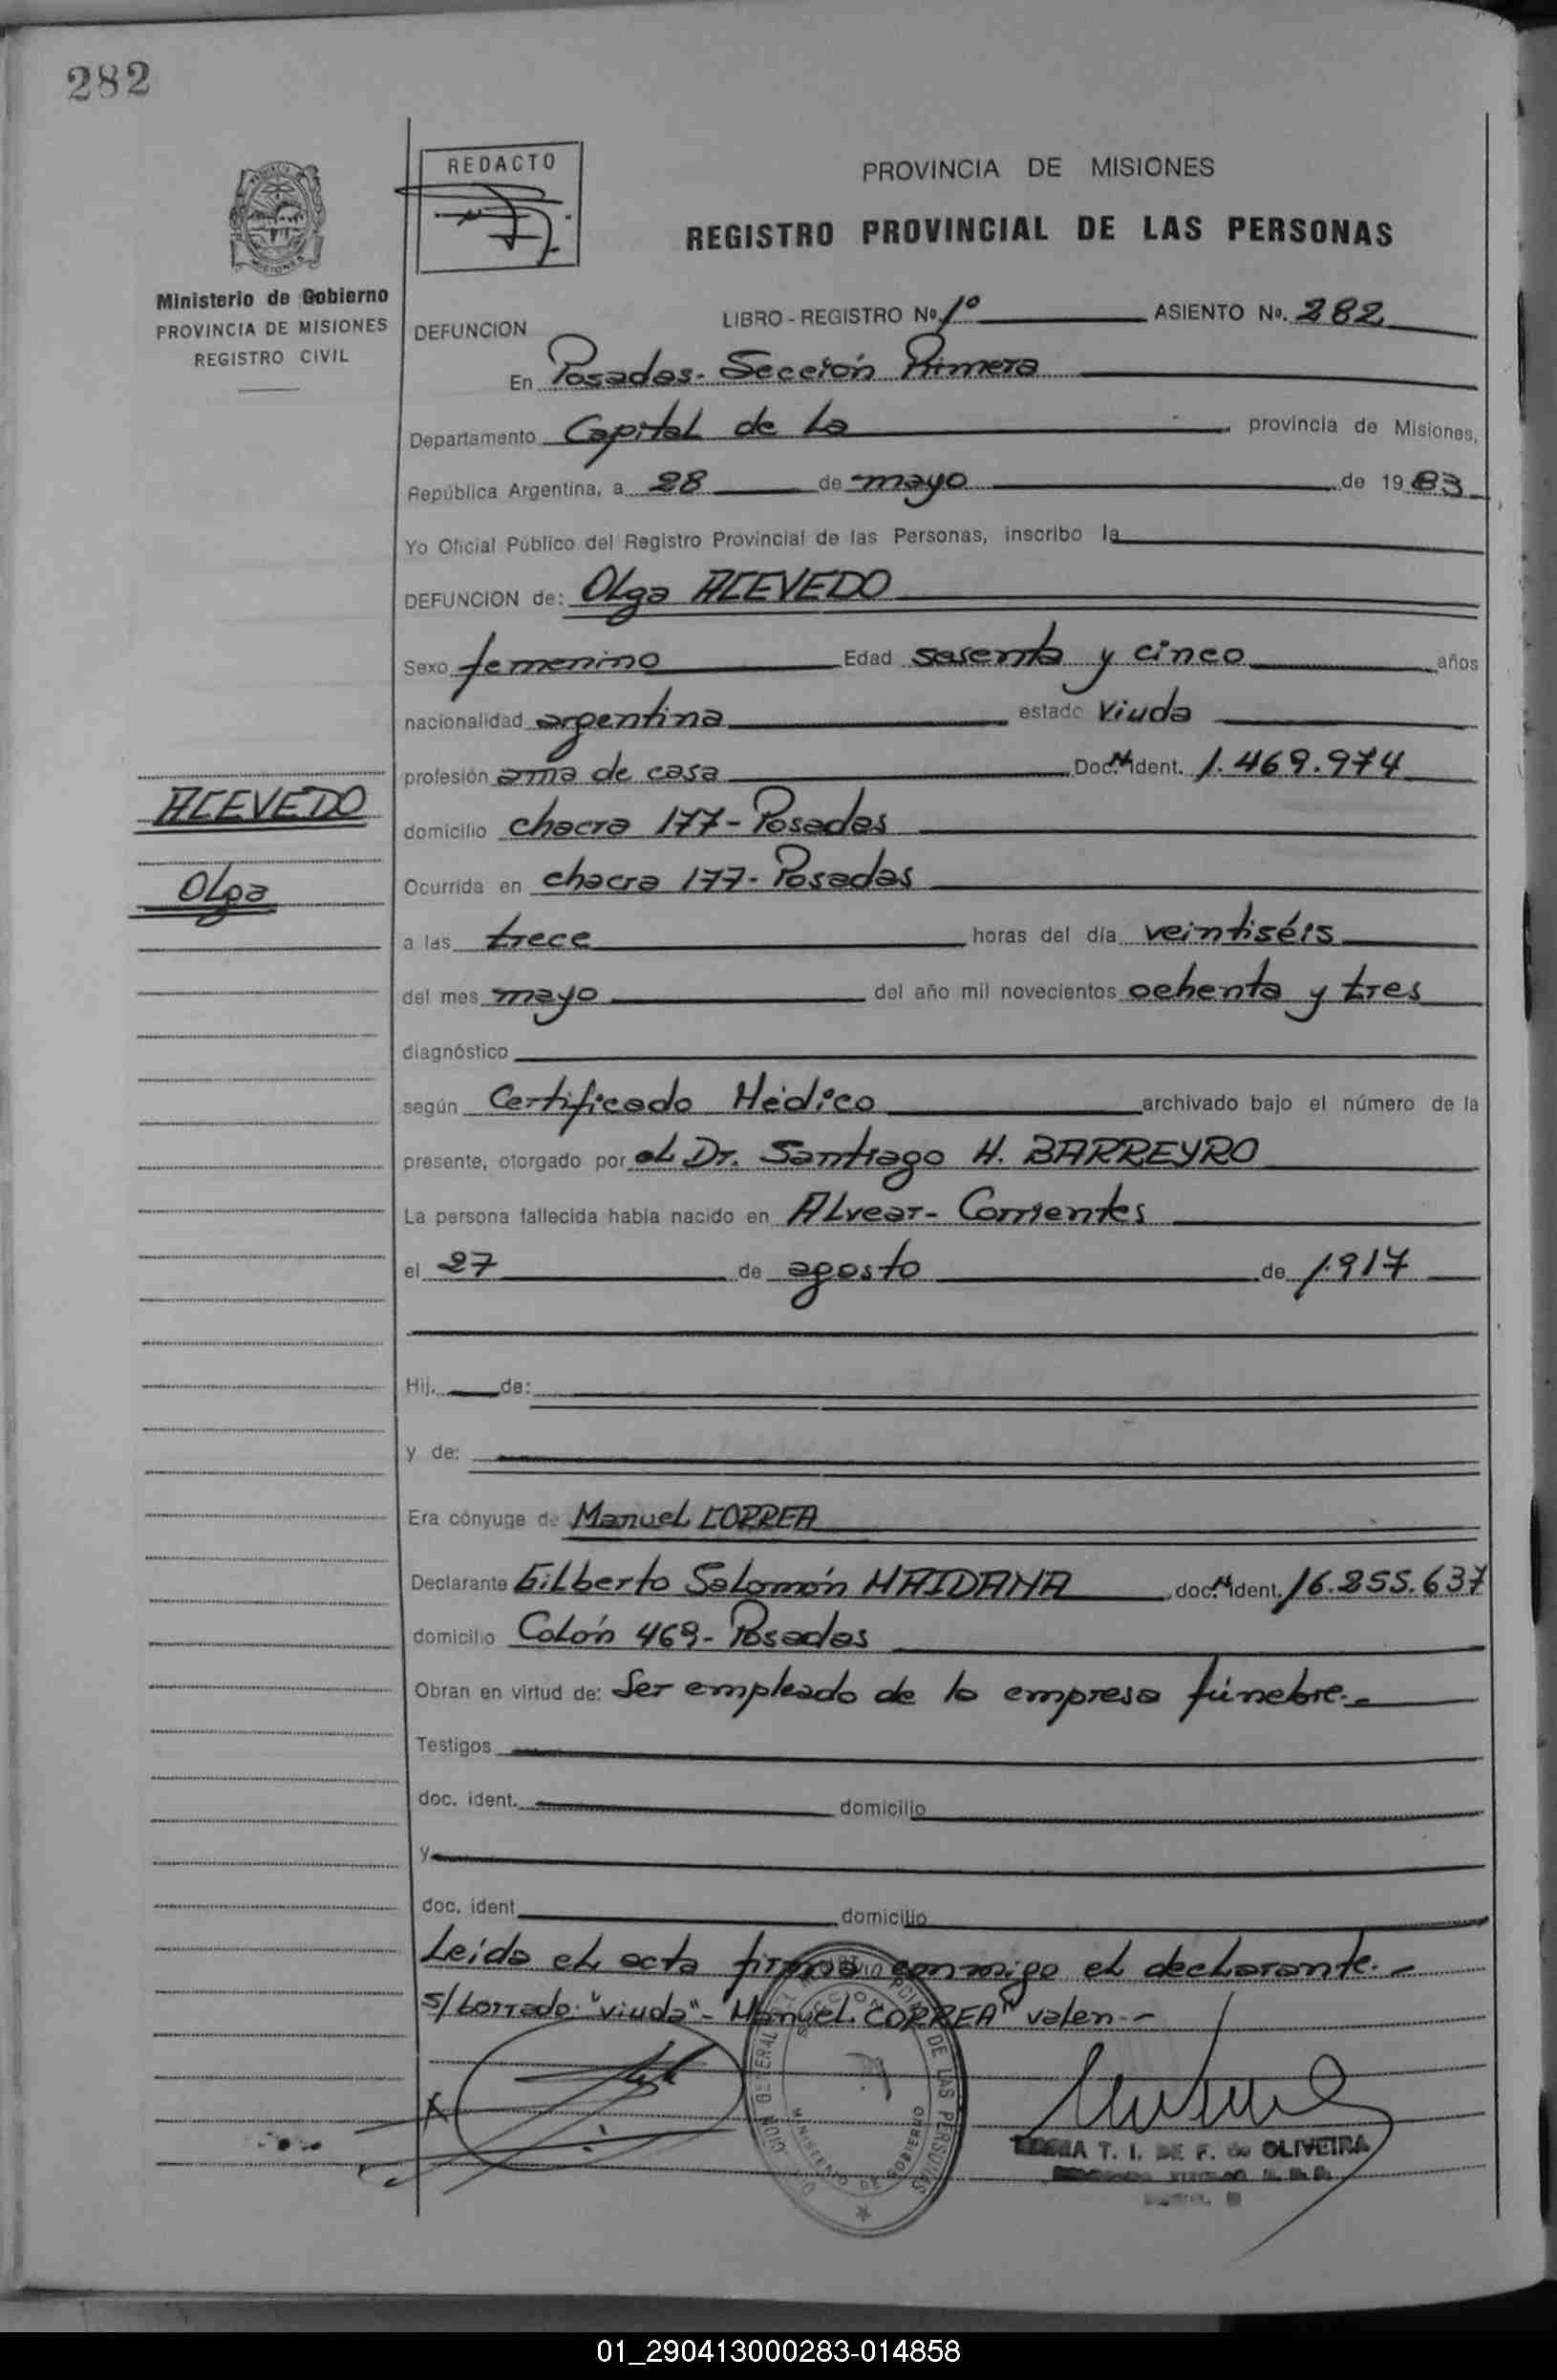 282
REDACTO
PROVINCIA DE MISIONES
REGISTRO PROVINCIAL DE LAS PERSONAS
MISIONES
Ministerio de Gobierno
PROVINCIA DE MISIONES
REGISTRO CIVIL
DEFUNCION LIBRO - REGISTRO Nº 1º ASIENTO Nº. 282
En Posadas - Sección Primera
Departamento Capital de La provincia de Misiones,
República Argentina, a 28 de mayo de 1983
Yo Oficial Público del Registro Provincial de las Personas, inscribo la
DEFUNCION de: Olga ACEVEDO
Sexo femenino Edad sesenta y cinco años
nacionalidad argentina estado Viuda
profesión ama de casa Doc. Nº Ident. 1.469.974
ACEVEDO
domicilio chacra 177 - Posadas
Olga
Ocurrida en chacra 177 - Posadas
a las trece horas del día veintiséis
del mes mayo del año mil novecientos ochenta y tres
diagnóstico
según Certificado Médico archivado bajo el número de la
presente, otorgado por el Dr. Santiago H. BARREYRO
La persona fallecida habia nacido en Alvear - Corrientes
el 27 de agosto de 1.917
Hij. de:
y de:
Era cónyuge de Manuel CORREA
Declarante Gilberto Salomón MAIDANA doc. Nº ident. 16.255.637
domicilio Colón 469 - Posadas
Obran en virtud de: Ser empleado de la empresa fúnebre.-
Testigos
doc. ident. domicilio
y
doc. ident domicilio
Leída el acta firma conmigo el declarante.-
s/borrado: "viuda" - Manuel CORREA" valen.-
DE LAS PERSONAS
MINISTERIO DE GOBIERNO
T. I. DE F. de OLIVEIRA
01_290413000283-014858